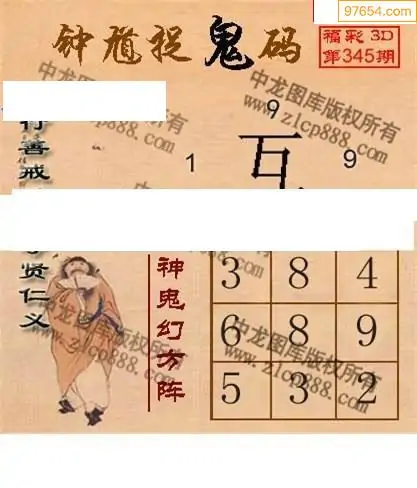 97654.com
钟馗捉鬼码
福彩3D
第345期
中龙图库版权所有
www.zlcp888.com
行善戒
9
1
互
9
贤仁义
神鬼幻方阵
3 8 4
6 8 9
5 3 2
中龙图库版权所有
www.zlcp888.com